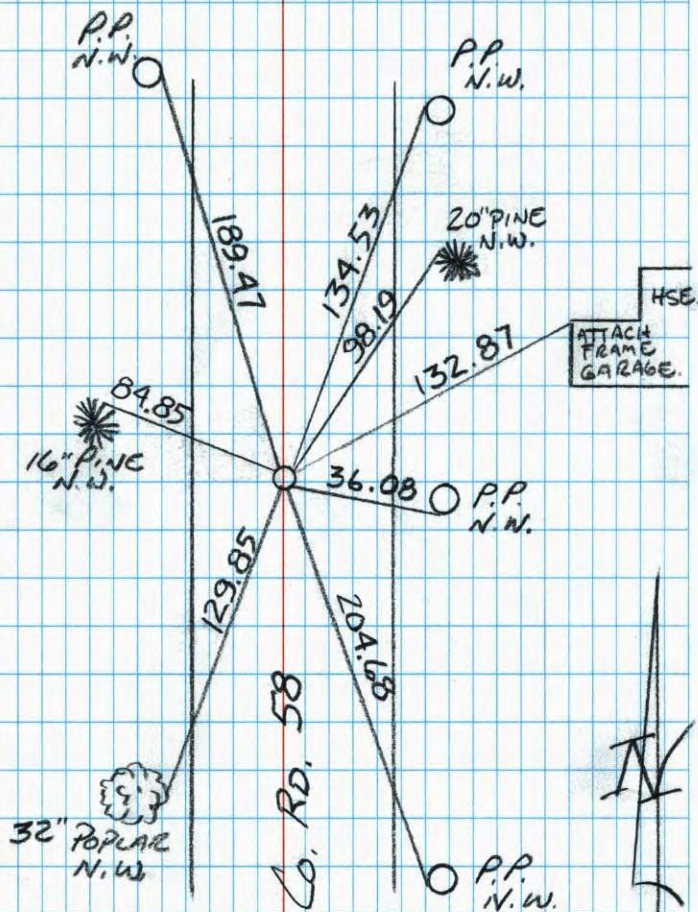 P.P.
N.W.
P.P.
N.W.
20" PINE
N.W.
189.47
134.53
98.19
HSE.
ATTACH
FRAME
GARAGE.
132.87
84.85
16" PINE
N.W.
36.08
P.P.
N.W.
129.85
204.68
Co. RD. 58
N
32" POPLAR
N.W.
P.P.
N.W.